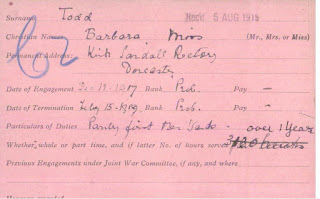 Surname Todd Recd 5 AUG 1919
Christian Names Barbara, Miss (Mr., Mrs. or Miss)
Permanent Address: Kirk Sandall Rectory
Doncaster
Date of Engagement 1917 Rank Prob. Pay —
Date of Termination Feby 15-1919 Rank Prob. Pay —
Particulars of Duties Pantry first over 1 Year
Whether whole or part time, and if latter No. of hours served
Previous Engagements under Joint War Committee, if any, and where